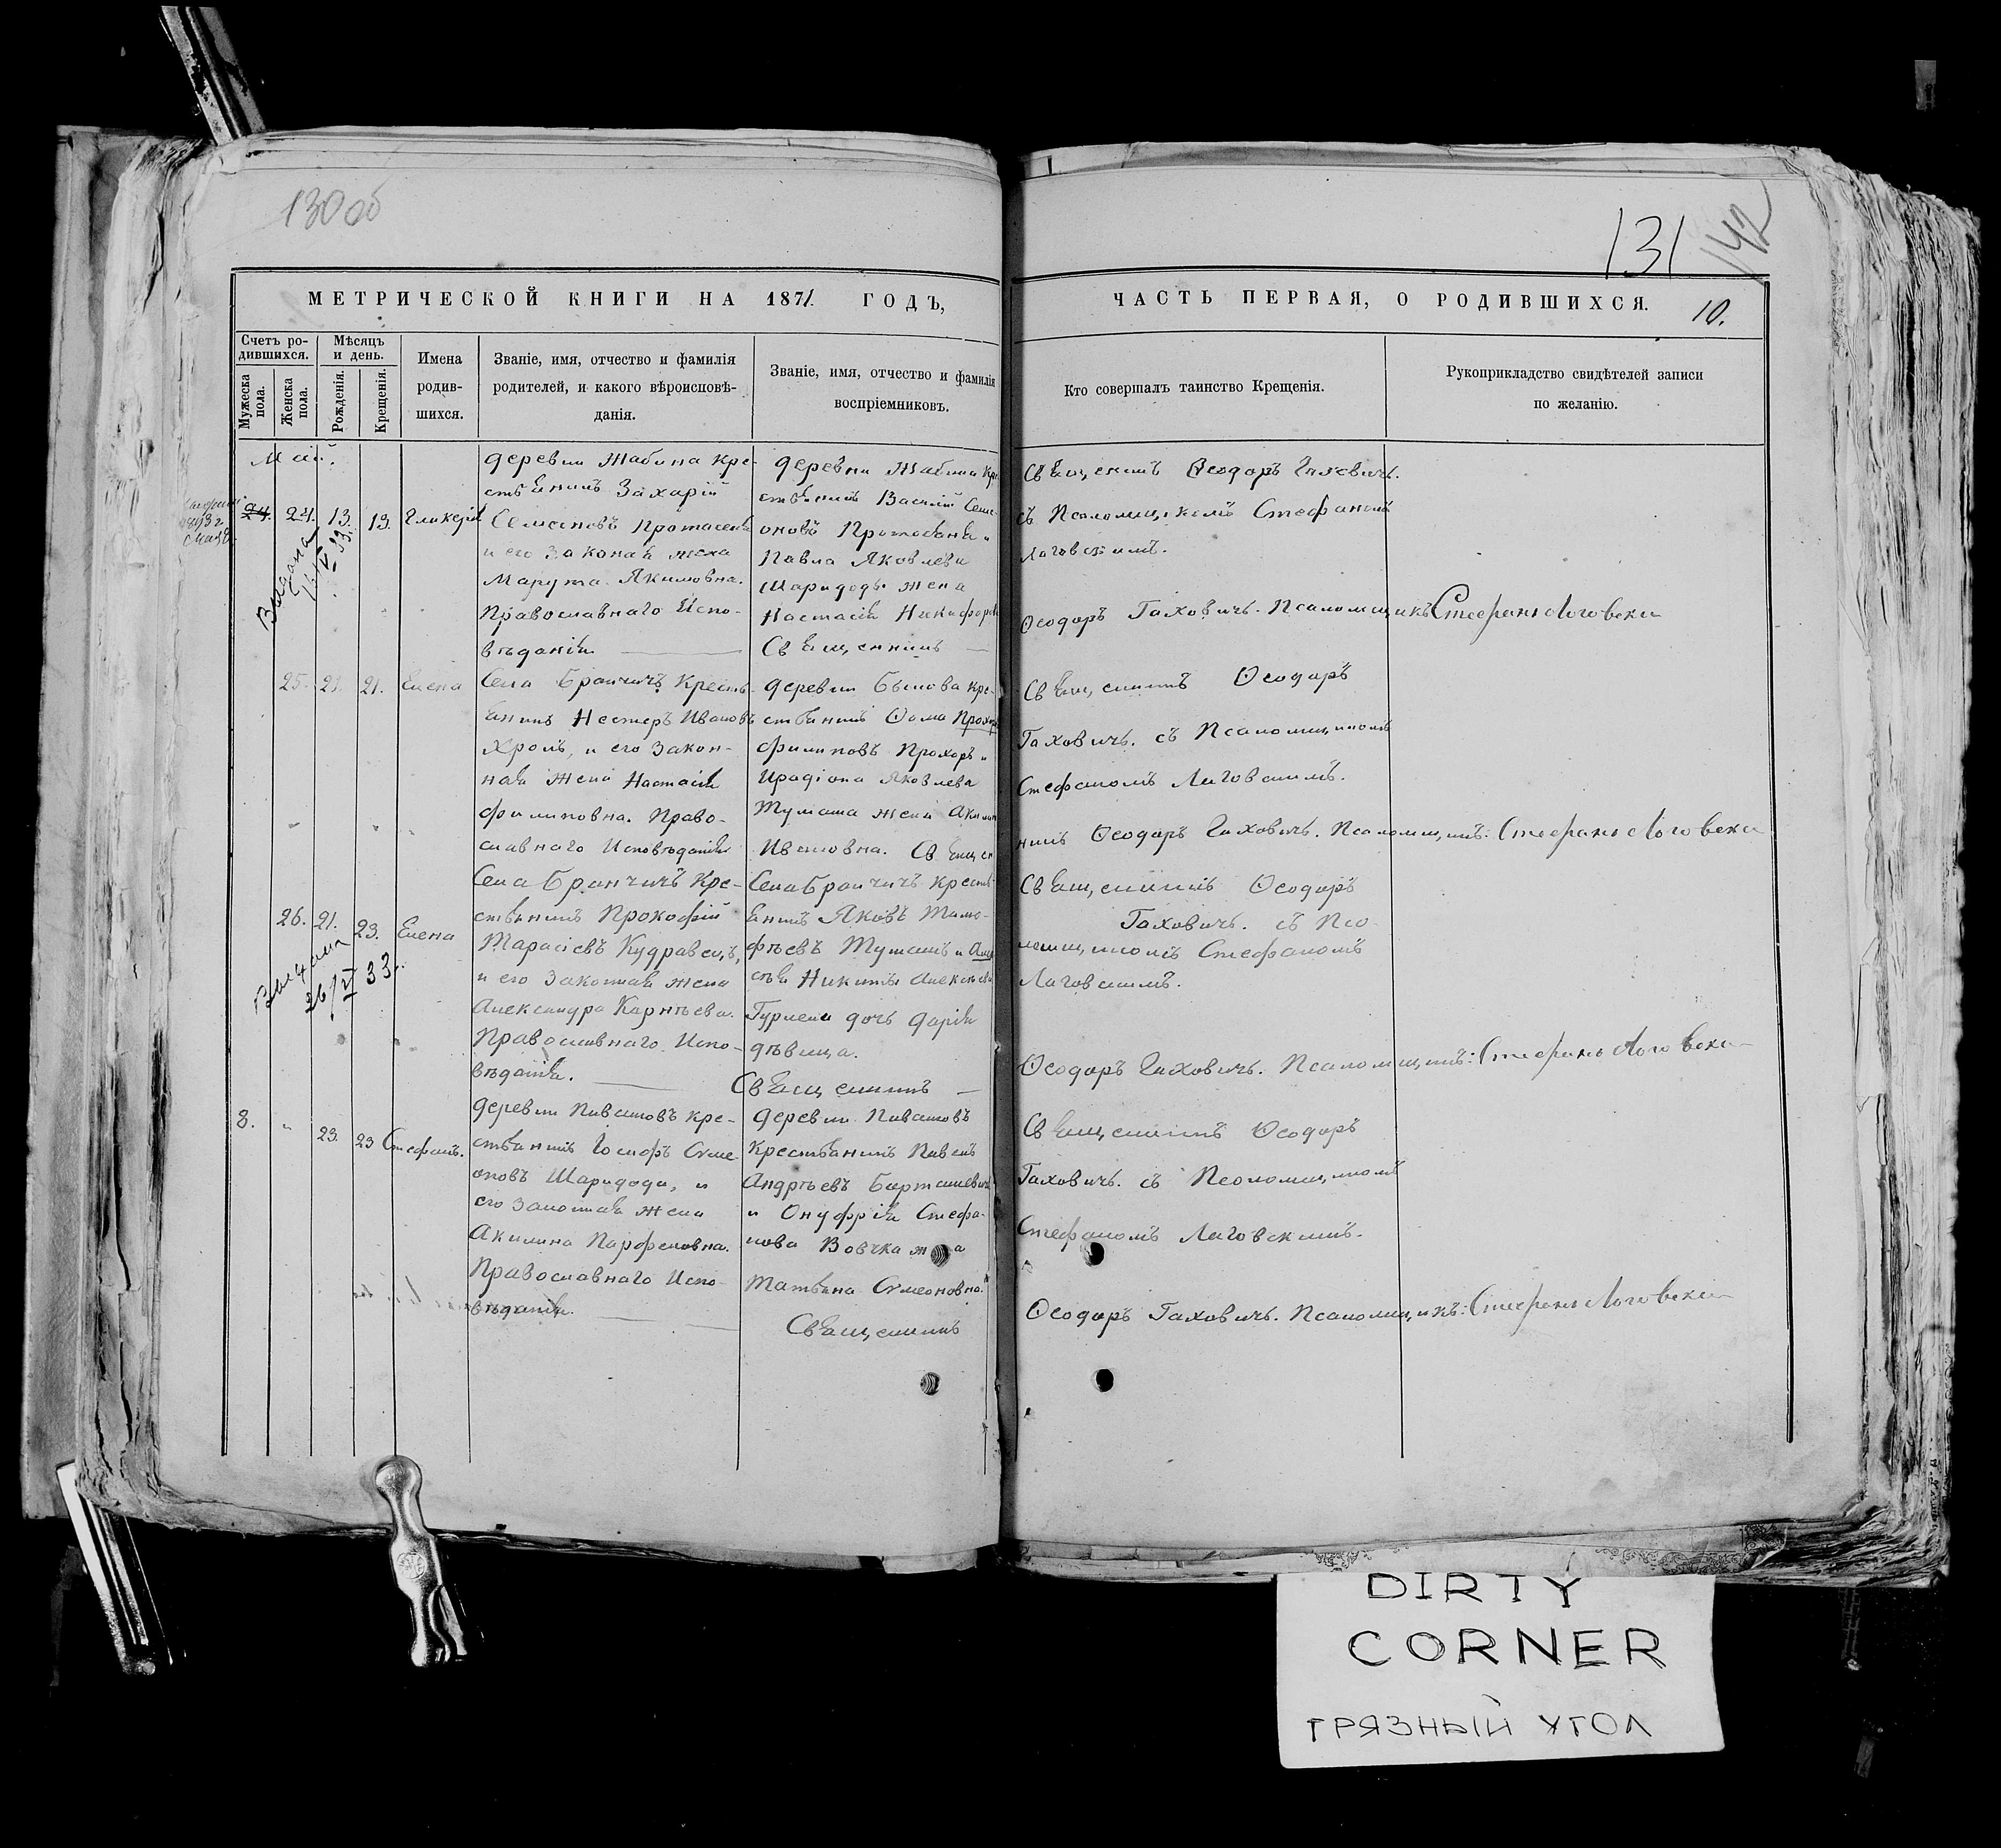 130 об
131
142
МЕТРИЧЕСКОЙ КНИГИ НА 1871 ГОДЪ,
ЧАСТЬ ПЕРВАЯ, О РОДИВШИХСЯ.
10.
Счетъ ро-
дившихся.
Мужеска
пола.
Женска
пола.
Мѣсяцъ
и день.
Рожденія.
Крещенія.
Имена
родив-
шихся.
Званіе, имя, отчество и фамилія
родителей, и какого вѣроисповѣ-
данія.
Званіе, имя, отчество и фамилія
воспріемниковъ.
Кто совершалъ таинство Крещенія.
Рукоприкладство свидѣтелей записи
по желанію.
Май.
24. 24. 13. 13. Гликерія
Выдана
16/IV 33.
деревни Жабина Кре-
стьянинъ Захарій
Семеновъ
и его законая жена
Марута Якимовна.
Православнаго Испо-
вѣданія
деревни Жабина
стьянинъ Василій Семе-
оновъ
Павла Яковлева
Шаридоды жена
Настасія Никифоров
Священникъ
Священникъ Ѳеодоръ Гаховичъ.
съ Псаломщикомъ Стефаномъ
Лаговскимъ.
Ѳеодоръ Гаховичъ. Псаломщикъ Стефанъ Логовски
25. 21. 21. Елена
Села Бранчичъ Кресть-
янинъ Нестеръ Ивановъ
Хромъ, и его Закон-
ная жена Настасія
Филиповна. Право-
славнаго Исповѣданія
деревни Быкова Кре-
стьянинъ Ѳома
Филиповъ Прохоръ и
Ирадіона Яковлева
Тумаша жена
Ивановна. Священ
Священникъ Ѳеодоръ
Гаховичъ. съ Псаломщикомъ
Стефаномъ Лаговскимъ.
никъ Ѳеодоръ Гаховичъ. Псаломщикъ: Стефанъ Логовски
26. 21. 23. Елена
Выдана
26/VI 33.
Села Бранчичъ Кре-
стьянинъ Прокофій
Тарасіевъ Кудравецъ,
и его Законная жена
Александра Карнѣева.
Православнаго Испо-
вѣданія.
Села Бранчичъ Кресть-
янинъ Яковъ Тимо-
фѣевъ Тумашъ и
Никиты
дочь Дарія
дѣвица.
Священникъ
Священникъ Ѳеодоръ
Гаховичъ. съ Пса-
ломщикомъ Стефаномъ
Лаговскимъ.
Ѳеодоръ Гаховичъ. Псаломщикъ: Стефанъ Логовски
8. " 23. 23 Стефанъ.
деревни Пивашовъ Кре-
стьянинъ Іосифъ Симе-
оновъ Шаридода, и
его Законная жена
Акилина Парфеновна.
Православнаго Испо-
вѣданія.
деревни Пивашовъ
Крестьянинъ Павелъ
Андрѣевъ
и Онуфрія Стефа-
нова Вовчка жена
Татьяна Симеоновна.
Священникъ
Священникъ Ѳеодоръ
Гаховичъ. съ Псаломщикомъ
Стефаномъ Лаговскимъ.
Ѳеодоръ Гаховичъ. Псаломщикъ: Стефанъ Логовски
DIRTY
CORNER
ГРЯЗНЫЙ УГОЛ